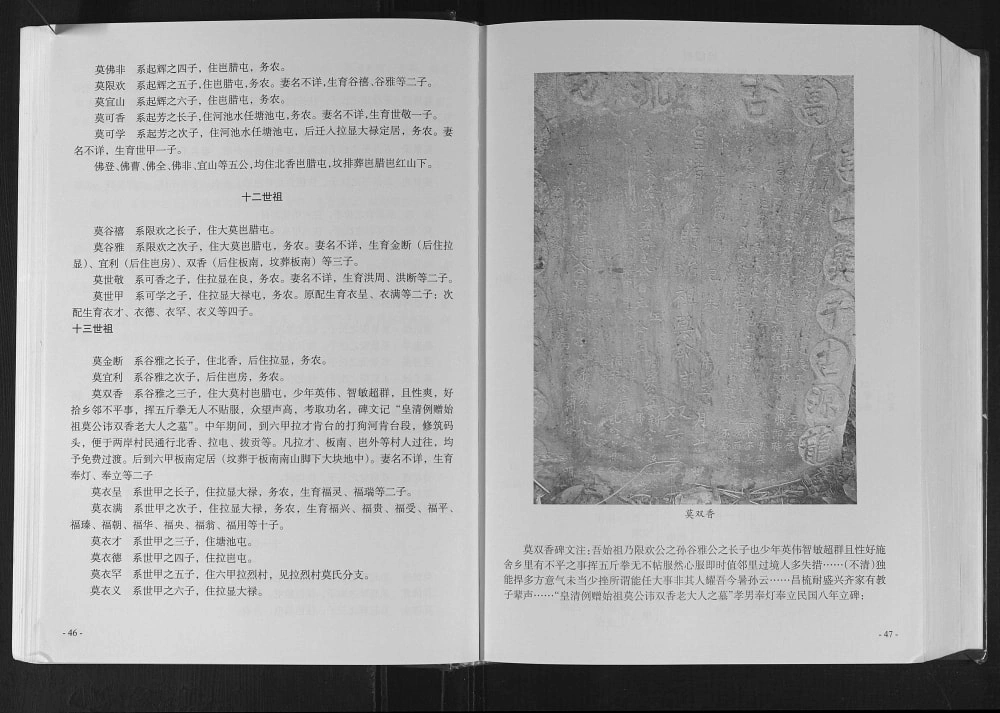 莫佛非　系起辉之四子，住岜腊屯，务农。
莫限欢　系起辉之五子，住岜腊屯，务农。妻名不详，生育谷禧、谷雅等二子。
莫宜山　系起辉之六子，住岜腊屯，务农。
莫可香　系起芳之长子，住河池水任塘池屯，务农。妻名不详，生育世敬一子。
莫可学　系起芳之次子，住河池水任塘池屯，后迁入拉显大禄定居，务农。妻
名不详，生育世甲一子。
佛登、佛曹、佛全、佛非、宜山等五公，均住北香岜腊屯，坟排葬岜腊岜红山下。
十二世祖
莫谷禧　系限欢之长子，住大莫岜腊屯。
莫谷雅　系限欢之次子，住大莫岜腊屯，务农。妻名不详，生育金断（后住拉
显）、宜利（后住岜房）、双香（后住板南，坟葬板南）等三子。
莫世敬　系可香之子，住拉显在良，务农。妻名不详，生育洪周、洪断等二子。
莫世甲　系可学之子，住拉显大禄屯，务农。原配生育衣呈、衣满等二子；次
配生育衣才、衣德、衣罕、衣义等四子。
十三世祖
莫金断　系谷雅之长子，住北香，后住拉显，务农。
莫宜利　系谷雅之次子，后住岜房，务农。
莫双香　系谷雅之三子，住大莫村岜腊屯，少年英伟、智敏超群，且性爽，好
拾乡邻不平事，挥五斤拳无人不贴服，众望声高，考取功名，碑文记“皇清例赠始
祖莫公讳双香老大人之墓”。中年期间，到六甲拉才肯台的打狗河肯台段，修筑码
头，便于两岸村民通行北香、拉电、拔贡等。凡拉才、板南、岜外等村人过往，均
予免费过渡。后到六甲板南定居（坟葬于板南南山脚下大块地中）。妻名不详，生育
奉灯、奉立等二子
莫衣呈　系世甲之长子，住拉显大禄，务农，生育福灵、福瑞等二子。
莫衣满　系世甲之次子，住拉显大禄，务农，生育福兴、福贵、福受、福平、
福瑧、福朝、福华、福央、福翁、福用等十子。
莫衣才　系世甲之三子，住塘池屯。
莫衣德　系世甲之四子，住拉岜屯。
莫衣罕　系世甲之五子，住六甲拉烈村，见拉烈村莫氏分支。
莫衣义　系世甲之六子，住拉显大禄。
- 46 -
莫双香
莫双香碑文注：吾始祖乃限欢公之孙谷雅公之长子也少年英伟智敏超群且性好施
舍乡里有不平之事挥五斤拳无不帖服然心服即时值邻里过境人多失措……（不清）独
能捍多方意气未当少挫所谓能任大事非其人耀吾今暑孙云……昌梳耐盛兴齐家有教
子辈声……“皇清例赠始祖莫公讳双香老大人之墓”孝男奉灯奉立民国八年立碑；
- 47 -